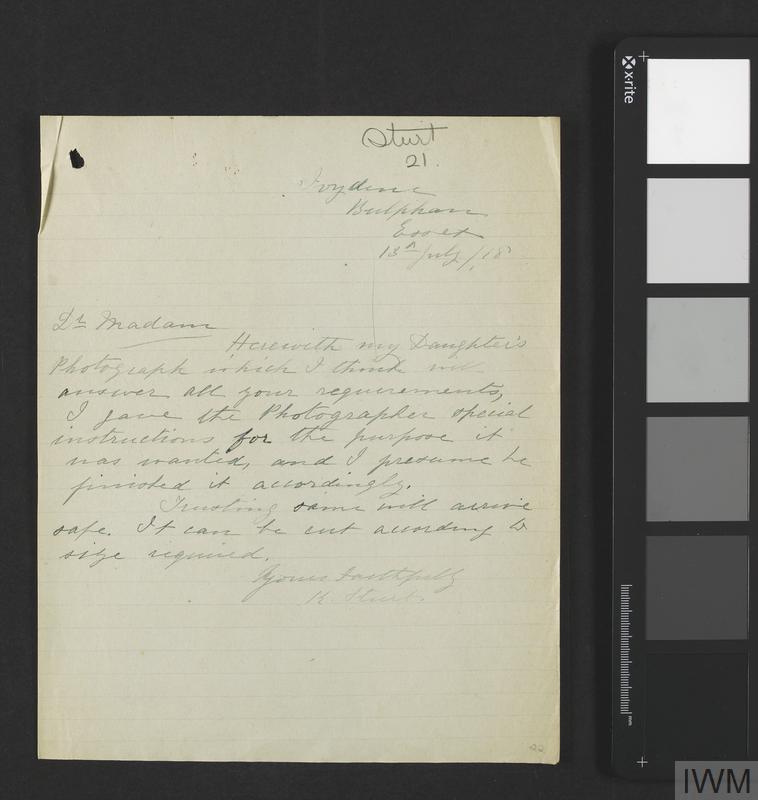 Sturt
21.
Ivydene
Bulphan
Essex
13th July /18
Dr Madam
Herewith my Daughter's
Photograph which I think will
answer all your requirements,
I gave the Photographer special
instructions for the purpose it
was wanted, and I presume he
finished it accordingly.
Trusting same will arrive
safe. It can be cut according to
size required.
Yours Faithfully
K. Sturt
22
x-rite
mm
IWM